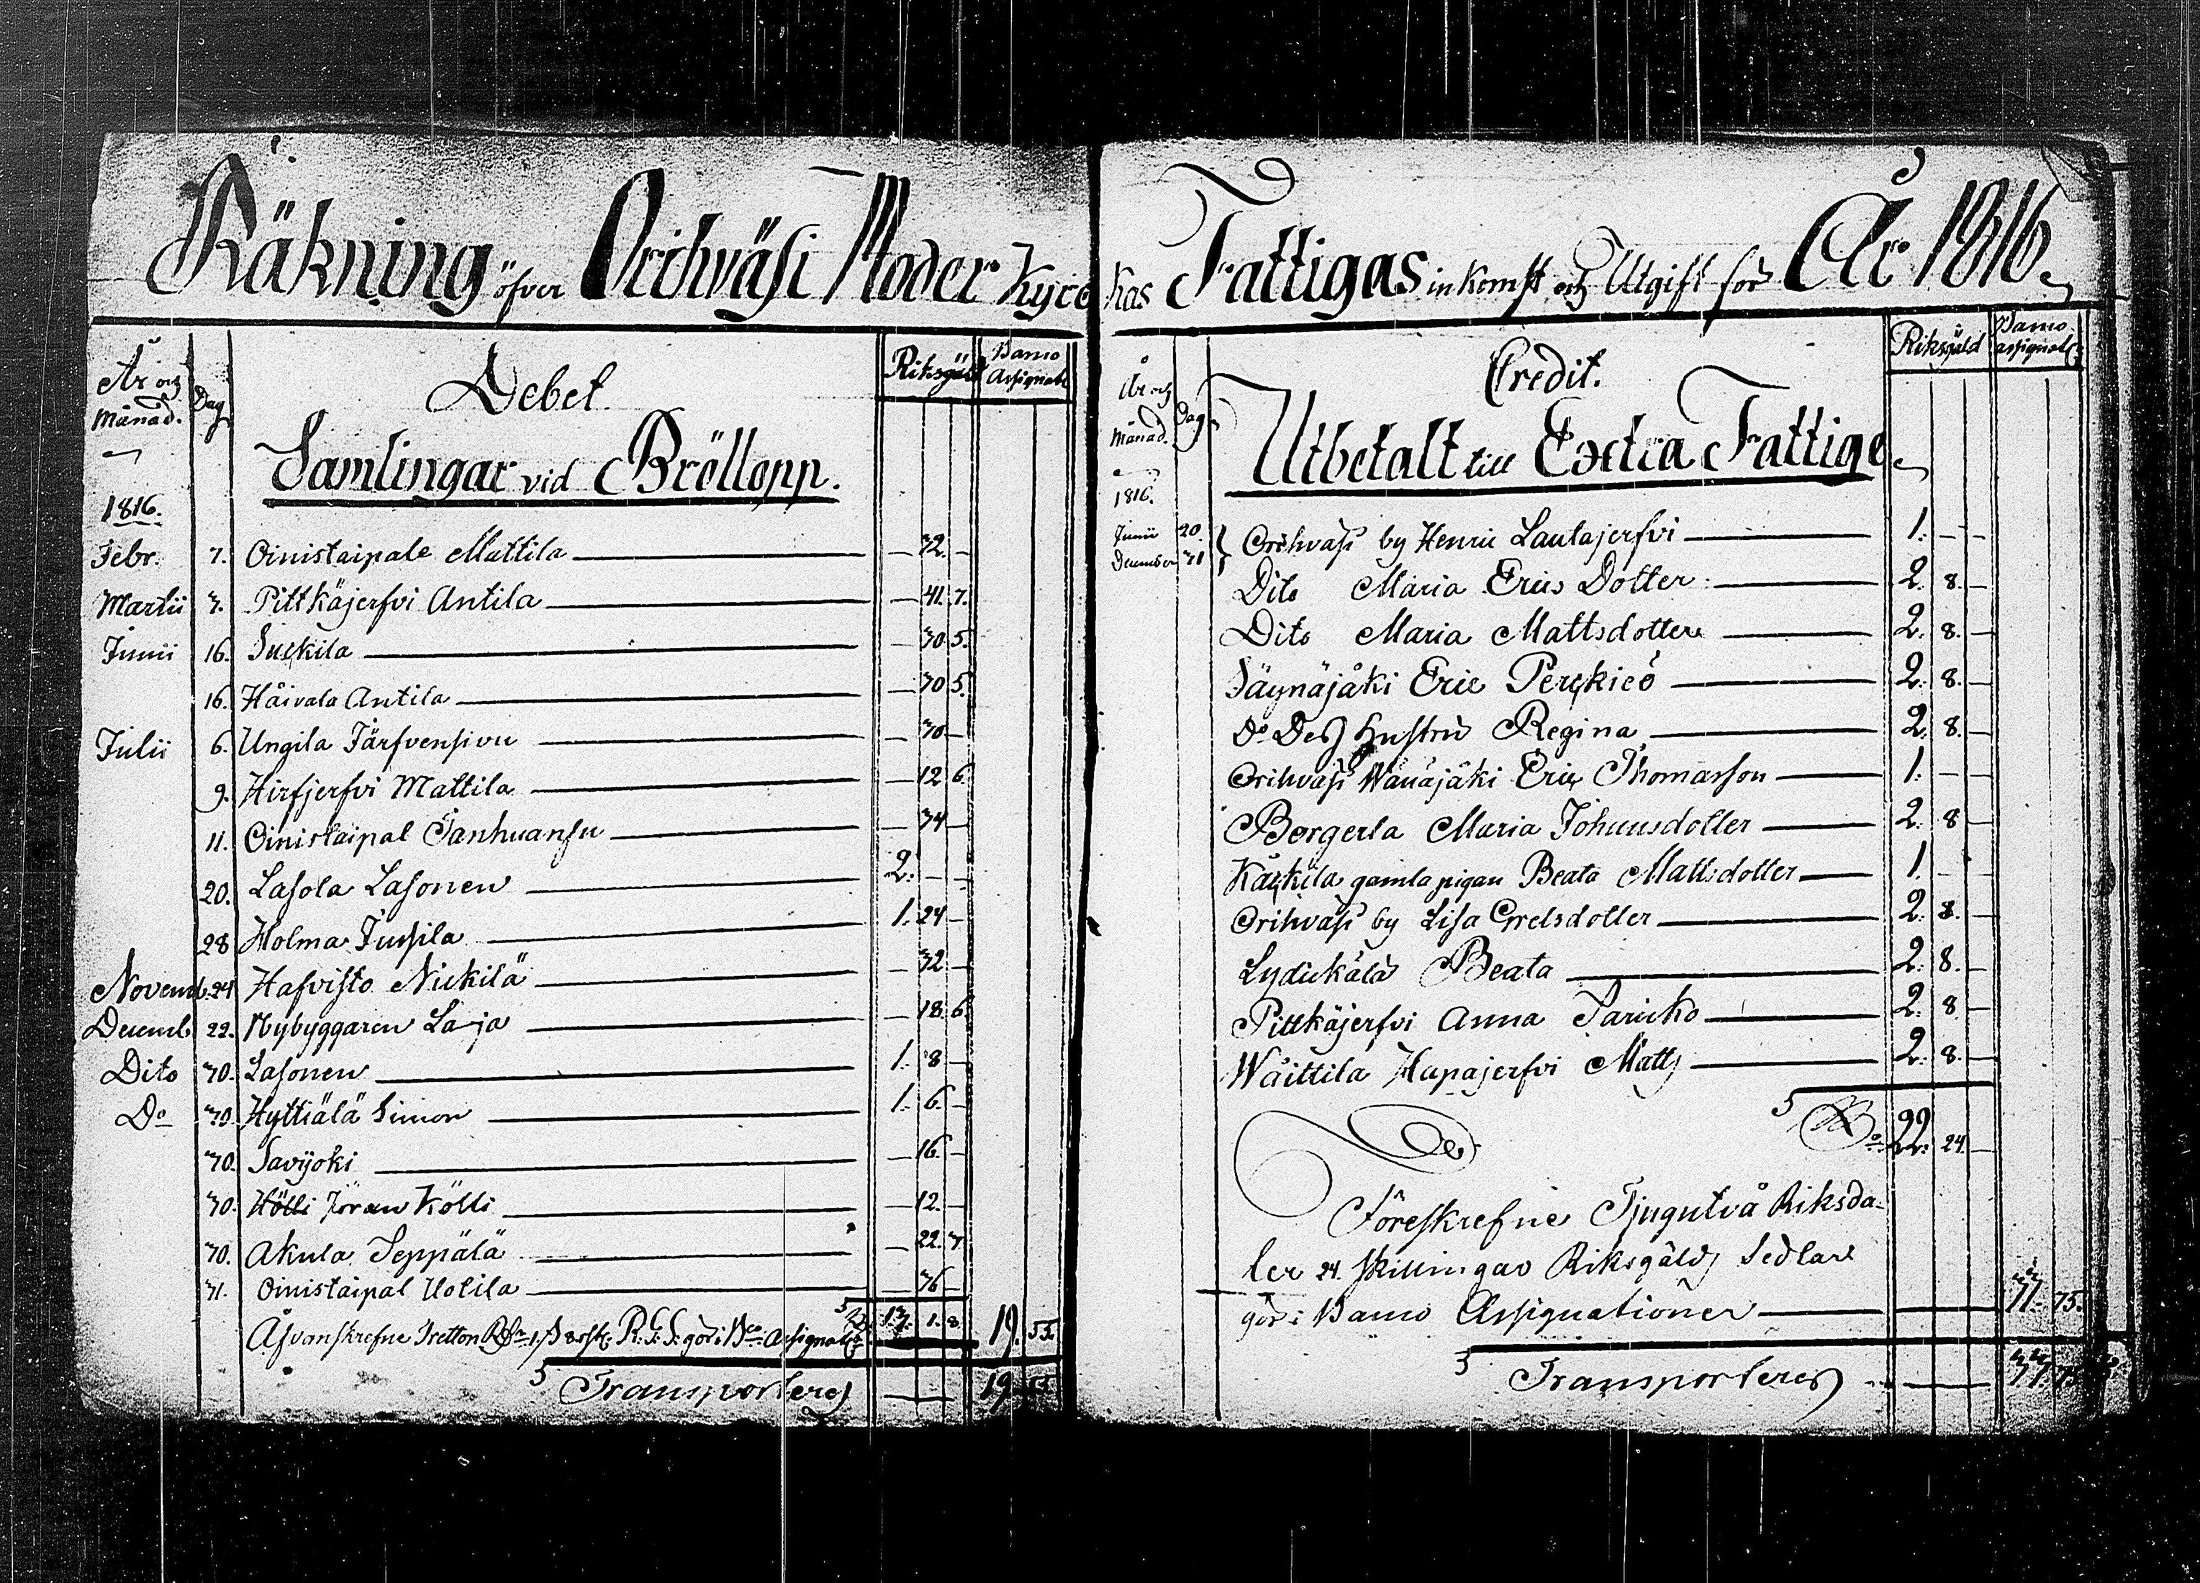 Räkning öfver Orihväsi Moder Kyrckas Fattigas inkomst och Utgift för År 1816.
År och Månad. Dag Debet. Riksgäld Banco Assignat
Samlingar vid Bröllopp.
1816.
Febr. 7. Oinistaipale Mattila — 32. —
Martii 3. Pittkäjerfvi Antila — 41. 7.
Junii 16. Suckila — 30. 5.
16. Håivala Antila — 30. 5.
Julii 6. Ungila Järfvensivu — 30 —
9. Hirfjerfvi Mattila — 12. 6.
11. Oinistaipal Janhuansu — 34 —
20. Lasola Lasonen 2. — —
28 Holma Jussila 1. 24 —
Novemb. 24 Hafvisto Nickilä — 32 —
Decemb. 22. Nybyggaren Laja — 18. 6.
Dito 30. Lasonen 1. 8. —
Do 30. Hyttiälä Simon 1. 6. —
30. Savijoki — 16. —
30. Hölli Jöran Kölli — 12. —
30. Akula Seppälä — 22. 3.
31. Oinistaipal Uotila — 36 —
Åfvanskrefne Tretton R 1 s 8 rst. R.G.S. gör i Bco Assignat. 13. 1. 8. 19. 55.
S Transporteres — — 19. 55.
År och Månad. Dag Credit. Riksgäld Banco assignat.
Utbetalt till Extra Fattige
1816.
Junii 20. December 31 } Orihväsi by Henric Lautajerfvi 1. — —
Dito Maria Erics Dotter 2. 8. —
Dito Maria Mattsdotter 2. 8. —
Säynäjåki Eric Perckiö 2. 8. —
Do Dess Hustru Regina 2. 8. —
Orihväsi Wäuäjåki Eric Thomasson 1. — —
Borgerla Maria Johansdotter 2. 8 —
Käckila gamla pigan Beata Mattsdotter 1. — —
Orihväsi by Lisa Gretsdotter 2. 8. —
Lydickälä Beata 2. 8. —
Pittkäjerfvi Anna Saricko 2. 8. —
Waittila Hapajerfvi Matts 2. 8. —
S 22. 24. —
Föreskrefne Tjugutvå Riksda-
ler 24 skillingar Riksgälds Sedlar
gör i Banco Assignationer 33. 75.
S Transporteres — 33. 75.